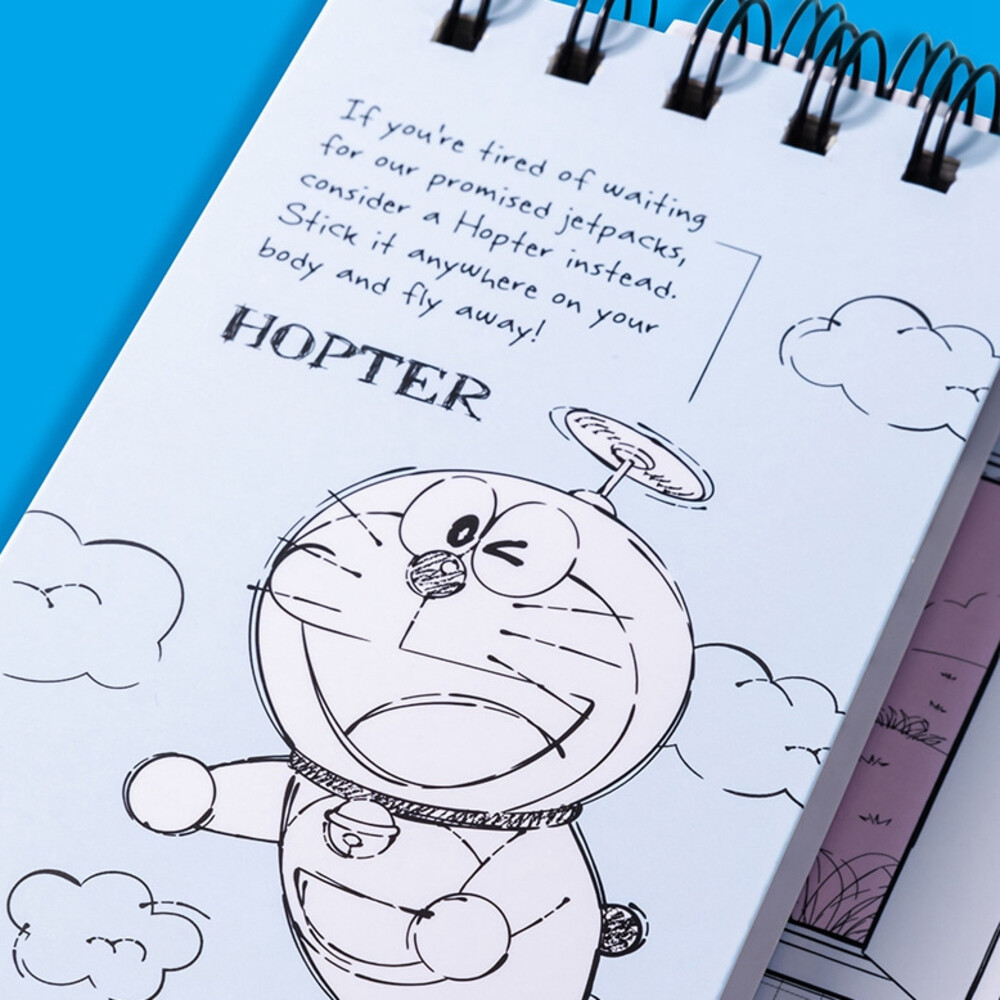 If you're tired of waiting
for our promised jetpacks,
consider a Hopter instead.
Stick it anywhere on your
body and fly away!
HOPTER